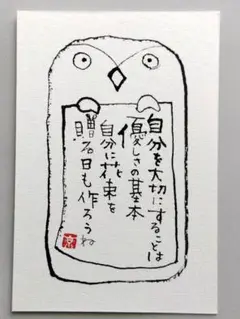 自分を大切にすることは
優しさの基本
自分に花束を
贈る日も作ろうね